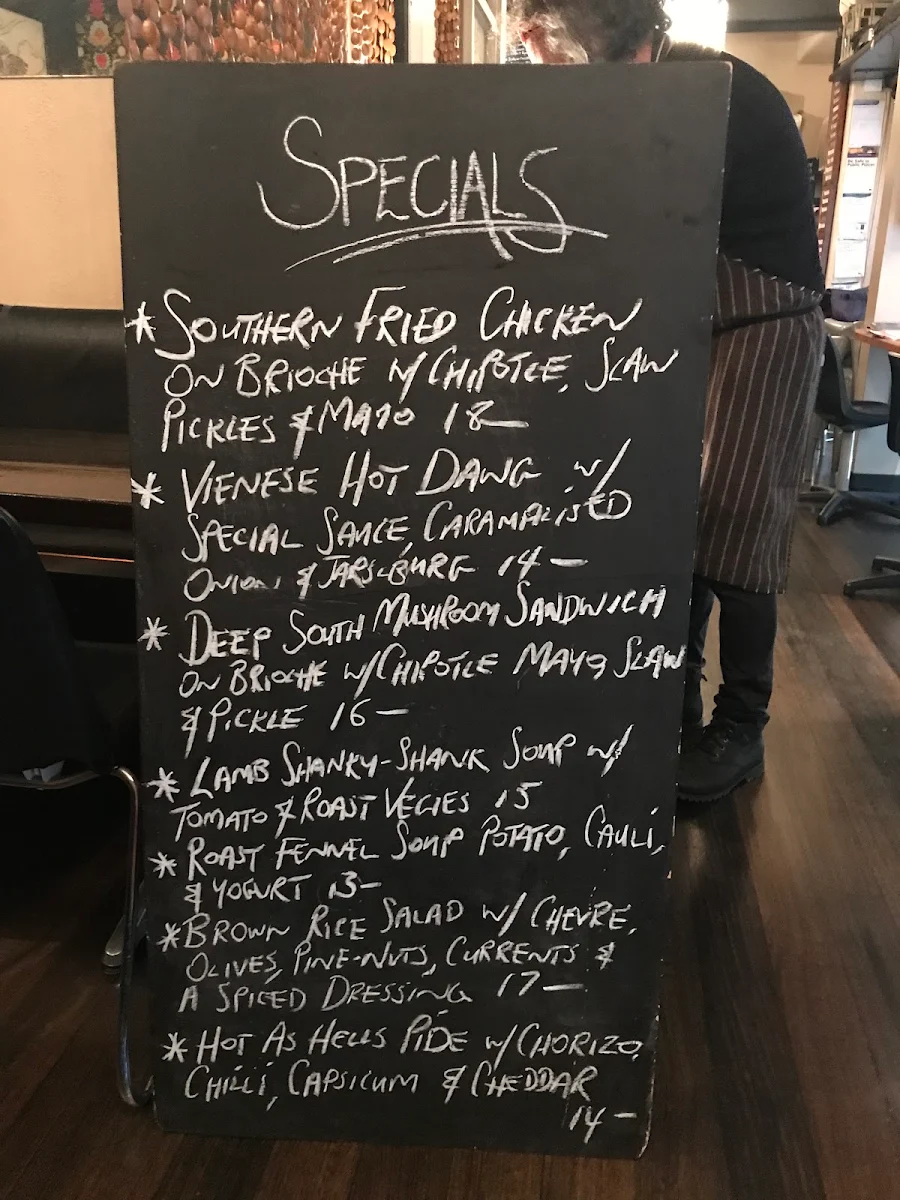 SPECIALS
* SOUTHERN FRIED CHICKEN
ON BRIOCHE W/ CHIPOTLE, SLAW
PICKLES & MAYO 18—
* VIENESE HOT DAWG w/
SPECIAL SAUCE, CARAMALISED
ONION & JARLSBURG 14—
* DEEP SOUTH MUSHROOM SANDWICH
ON BRIOCHE W/ CHIPOTLE MAYO, SLAW
& PICKLE 16—
* LAMB SHANKY-SHANK SOUP w/
TOMATO & ROAST VEGIES 15
* ROAST FENNEL SOUP POTATO, CAULI,
& YOGURT 13—
* BROWN RICE SALAD w/ CHEVRE,
OLIVES, PINE-NUTS, CURRENTS &
A SPICED DRESSING 17—
* HOT AS HELLS PIDE w/ CHORIZO,
CHILLI, CAPSICUM & CHEDDAR
14—